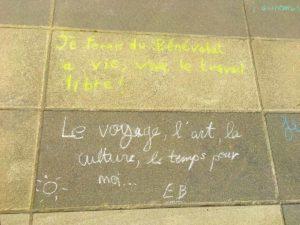 Je ferais du Bénévolat
a vie, vive le travail
libre !
Le voyage, l'art, la
culture, le temps pour
moi...
EB